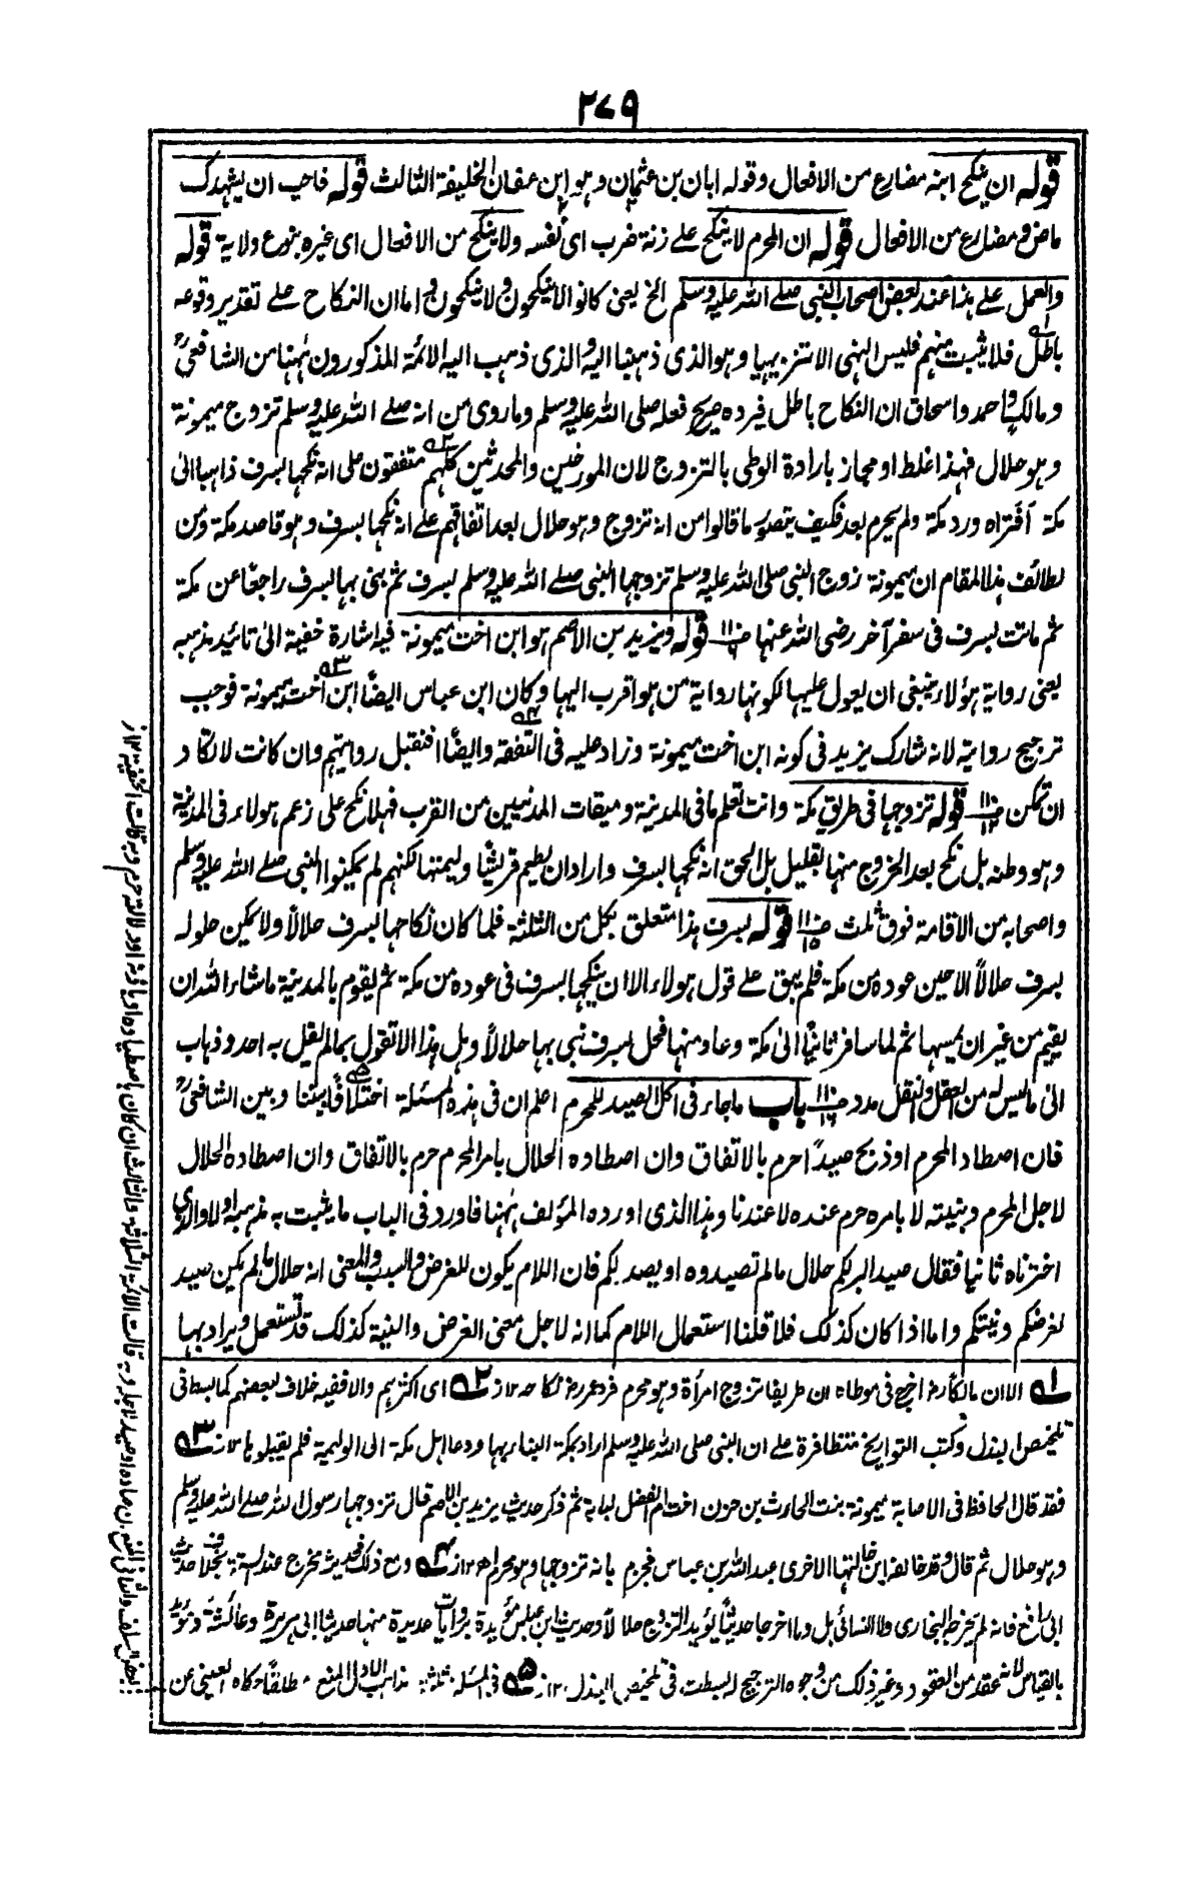 ٢٧٩
قوله ان ينكح ابنه مضارع من الافعال وقوله ابان بن عثمان وهو ابن عفان الخليفة الثالث قوله فاحب ان يشهدك
ماض ومضارع من الافعال قوله ان المحرم لا ينكح على زنة ضرب اى نفسه ولا ينكح من الافعال اى غيره بنوع ولاية قوله
والعمل على هذا عند بعض اصحاب النبى صلى الله عليه وسلم الخ يعنى كانوا لا ينكحون ولا ينكحون واما ان النكاح على تقدير وقوعه
باطل فلا يثبت منهم فليس النهى الا تنزيهيا وهو الذى ذهبنا اليه والذى ذهب اليه الائمة المذكورون ههنا من الشافعىؒ
ومالكؒ واحمد واسحاق ان النكاح باطل فيرده صريح فعله صلى الله عليه وسلم وما روى من انه صلى الله عليه وسلم تزوج ميمونة
وهو حلال فهذا غلط او مجاز بارادة الوطى بالتزوج لان المورخين والمحدثين كلهم متفقون على انه نكحها بسرف ذاهبا الى
مكة أفتراه ورد مكة ولم يحرم بعد فكيف يتصور ما قالوا من انه تزوج وهو حلال بعد اتفاقهم على انه نكحها بسرف وهو قاصد مكة ومن
لطائف هذا المقام ان ميمونة زوج النبى صلى الله عليه وسلم تزوجها النبى صلى الله عليه وسلم بسرف ثم بنى بها بسرف راجعا عن مكة
ثم ماتت بسرف فى سفر آخر رضى الله عنها قوله ويزيد بن الاصم هو ابن اخت ميمونة فيه اشارة خفية الى تائيد مذهبه
يعنى رواية هؤلاء ينبغى ان يعول عليها لكونها رواية من هو اقرب اليها وكان ابن عباس ايضًا ابن اخت ميمونة فوجب
ترجيح روايته لانه شارك يزيد فى كونه ابن اخت ميمونة وزاد عليه فى التفقه وايضًا افنقبل روايتهم وان كانت لا تكاد
ان تمكن قوله تزوجها فى طريق مكة وانت تعلم ما فى المدينة وميقات المدنيين من القرب فهلا نكح على زعم هولاء فى المدينة
وهو وطنه بل نكح بعد الخروج منها بقليل بل الحق انه نكحها بسرف واراد ان يطعم قريشًا وليمتها لكنهم لم يمكنوا النبى صلى الله عليه وسلم
واصحابه من الاقامة فوق ثلث قوله بسرف هذا متعلق بكل من الثلثة فلما كان نكاحها بسرف حلالاً ولا يمكن حلوله
بسرف حلالاً الا حين عوده من مكة فلم يبق على قول هولاء الا ان ينكحها بسرف فى عوده من مكة ثم يقوم بالمدينة ما شاء الله ان
يقيم من غير ان يمسها ثم لما سافر ثانيًا الى مكة وعاد منها فحل بسرف بنى بها حلالاً وهل هذا الا تقول بما لم يقل به احد وذهاب
الى ما ليس له من العقل والنقل مدد باب ما جاء فى اكل الصيد للمحرم اعلم ان فى هذه المسئلة اختلافًا بيننا وبين الشافعىؒ
فان اصطاد المحرم او ذبح صيدًا حرم بالاتفاق وان اصطاده الحلال بامر المحرم حرم بالاتفاق وان اصطاده الحلال
لاجل المحرم وبنيته لا بامره حرم عنده لا عندنا وهذا الذى اورده المؤلف ههنا فاورد فى الباب ما يثبت به مذهبه اولا والذى
اخترناه ثانيا فقال صيد البر لكم حلال ما لم تصيدوه او يصد لكم فان اللام يكون للغرض والسبب والمعنى انه حلال ما لم يكن صيد
لغرضكم ونيتكم واما اذا كان كذلك فلا قلنا استعمال اللام كما انه لاجل معنى الغرض والنية كذلك قد تستعمل ويراد بها
ــ١ الا ان مالكًا اخرج فى موطاه ان طريفا تزوج امرأة وهو محرم فرد عمر نكاحه ١٢ ز ــ٢ اى اكثرهم والا ففيه خلاف لبعضهم كما بسط فى
تلخيص البذل وكتب التواريخ متظافرة على ان النبى صلى الله عليه وسلم اراد بمكة البناء بها ودعا اهل مكة الى الوليمة فلم يقبلوها ١٢ ز ــ٣
فقد قال الحافظ فى الاصابة ميمونة بنت الحارث بن حزن اخت ام الفضل لبابة ثم ذكر حديث يزيد بن الاصم قال تزوجها رسول الله صلى الله عليه وسلم
وهو حلال ثم قال وقد خالفه ابن خالتها الاخرى عبد الله بن عباس فجزم بانه تزوجها وهو محرم ١٢ ز ــ٤ ومع ذلك فحديثه مخرج عند الستة بخلاف حديث
ابى رافع فانه لم يخرجه البخارى ولا النسائى بل وما اخرجا حديثًا يؤيد التزوج حلالاً وحديث ابن عباس مؤيدة بروايات عديدة منها حديثا ابى هريرة وعائشة ومؤيد
بالقياس لانه عقد من العقود وغير ذلك من وجوه الترجيح له بسطت فى تلخيص البذل ١٢ ز ــ٥ فى المسئلة ثلثة مذاهب الاول المنع مطلقًا حكاه العينى عن
بعض السلف والثانى المنع ان صاده او صيد لاجله وبه قالت الائمة الثلاثة والثالث ان كان باصطياده او باذنه او دلالته حرم وبه قالت الحنفية ١٢ ز